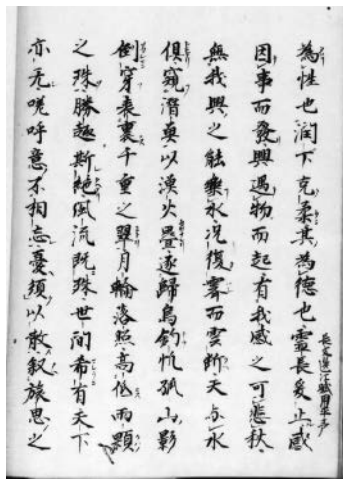 為性也潤下克柔其為德也靈長爰止感
因事而發興遇物而起有我感之可悲秋
無我興之能樂水況復霽而雲斷天与水
俱窺潛奧以漢火疊逐歸烏釣忙孤山影
倒穿表裏千重之翠月輪落照高低兩顆
之珠勝趣斯絕風流既殊世間希有天下
亦无嗟呼意不相忘憂須以散叙旅思之